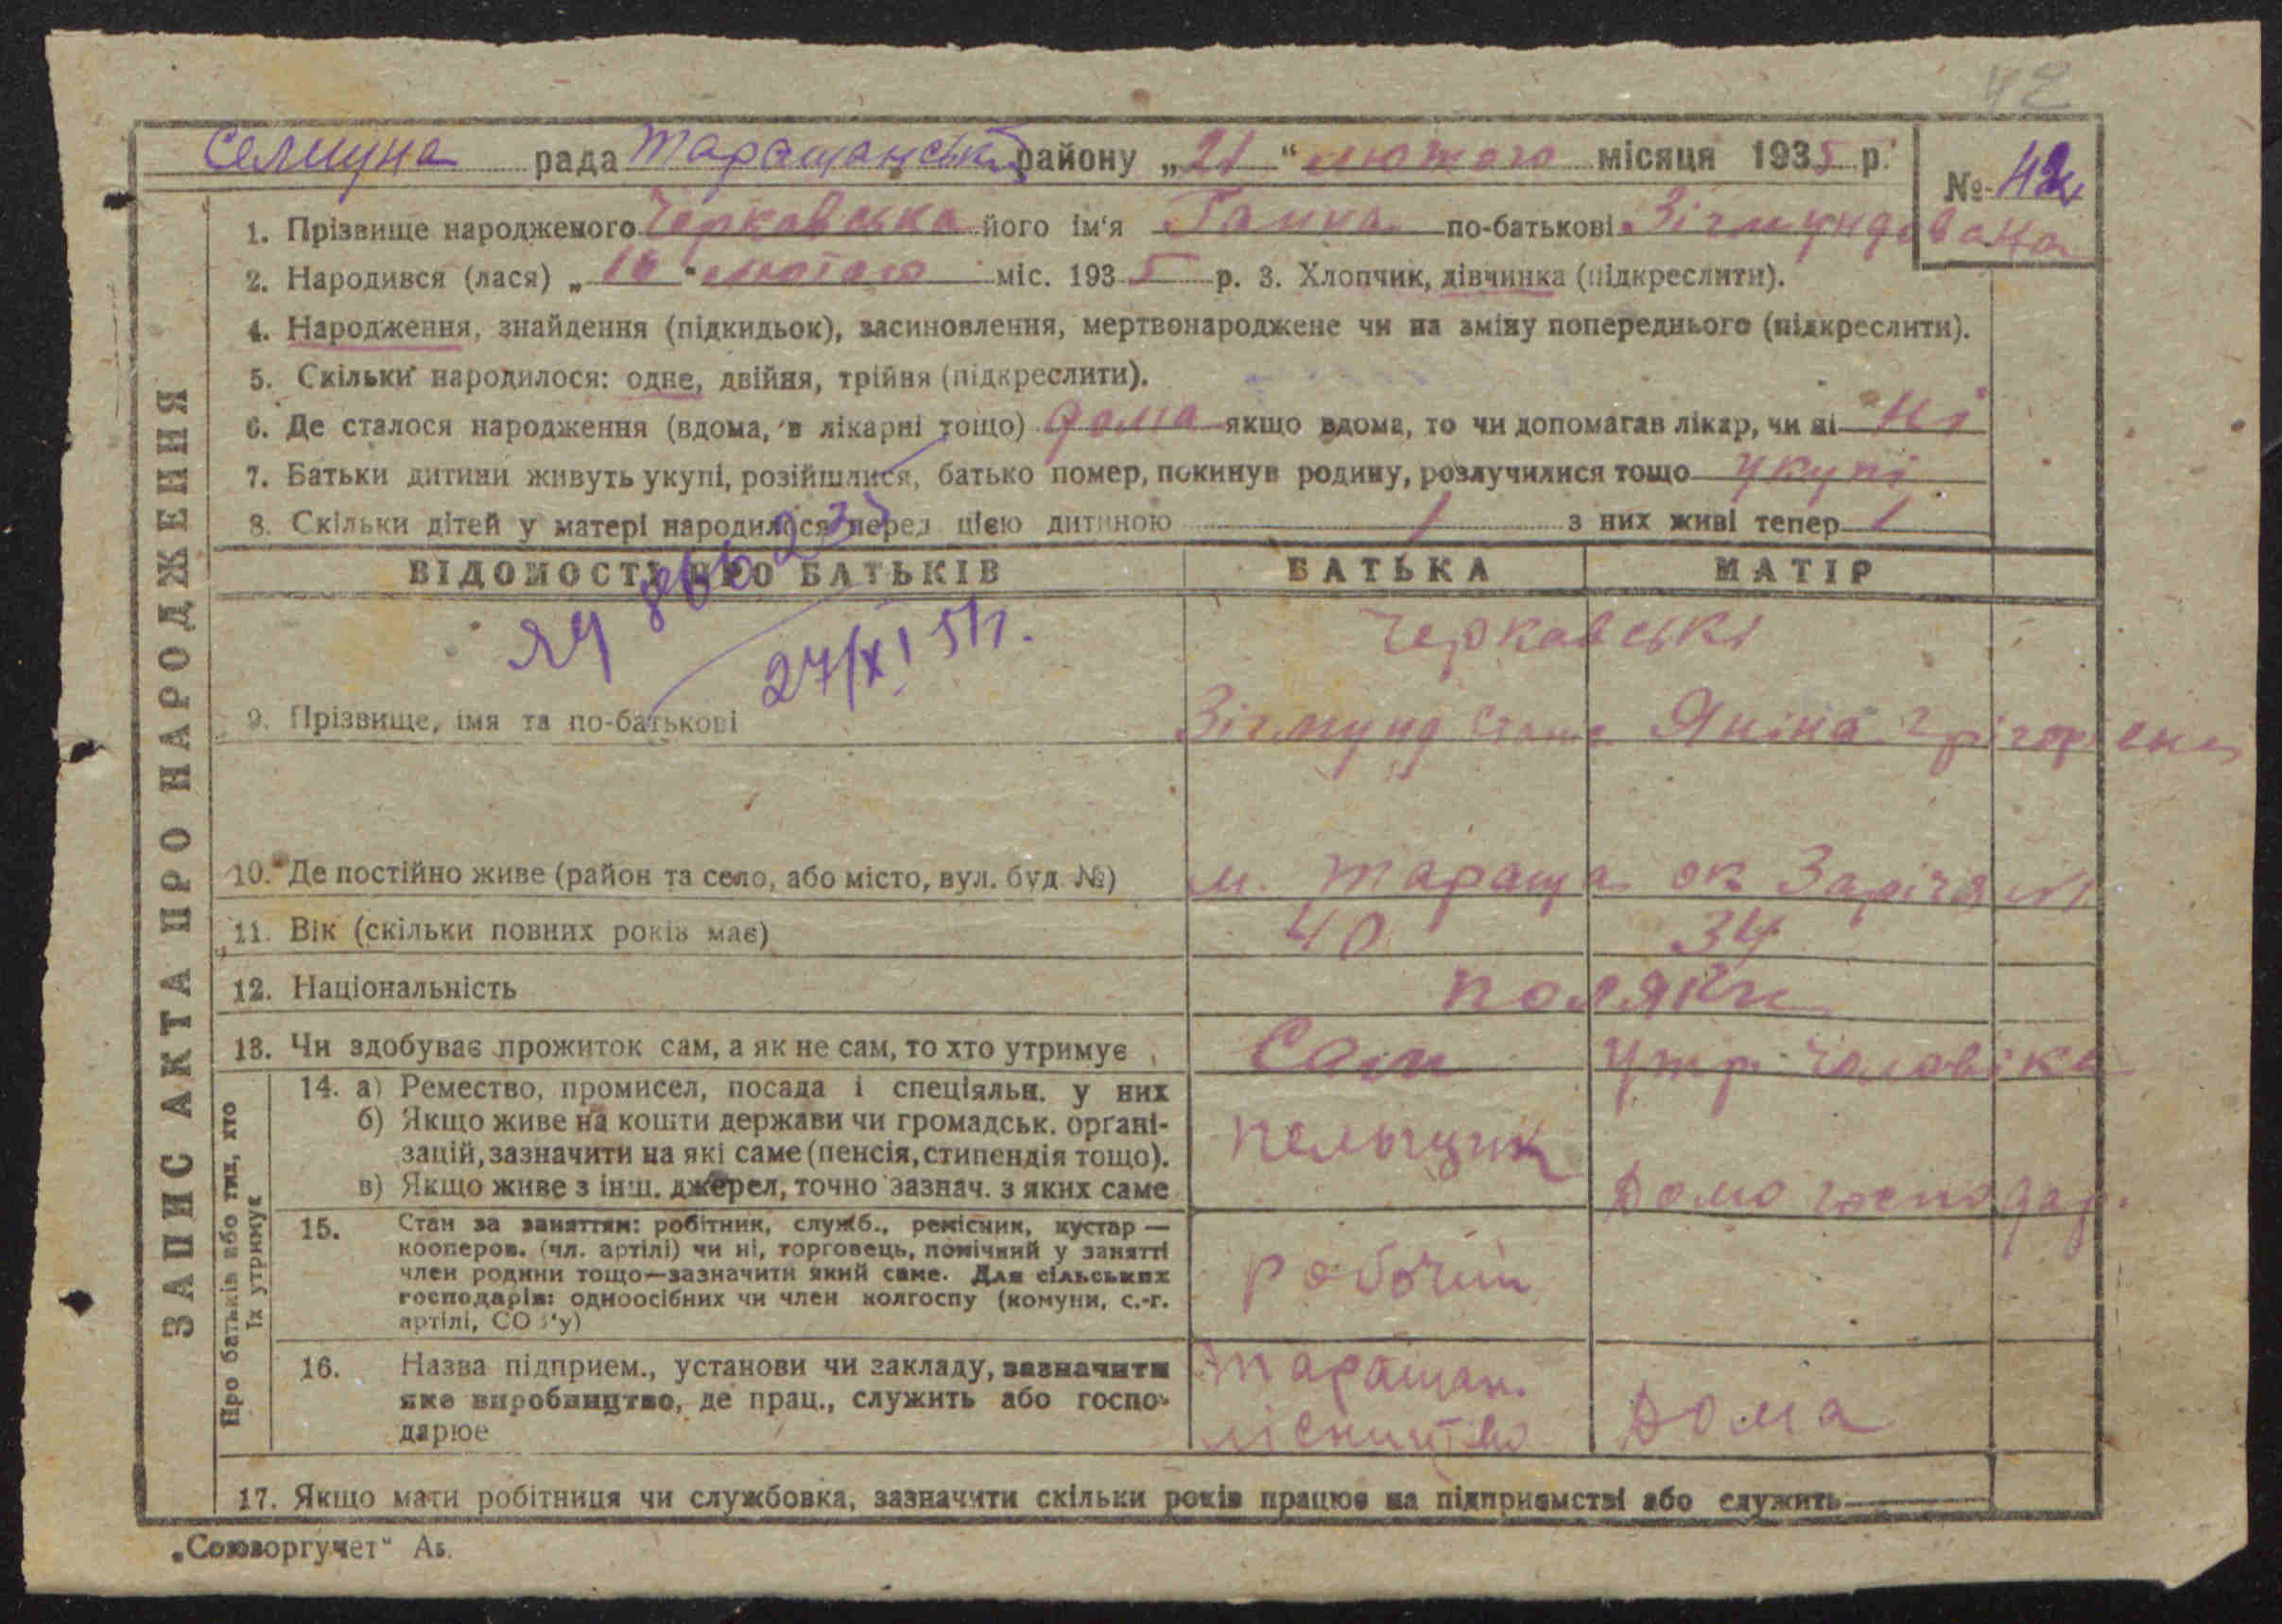 42
Селищна рада Таращанськ. району „21“ лютого місяця 1935 р. № 42
1. Прізвище народженого Черкавська його ім'я Ганна по-батькові Зігмундована
2. Народився (лася) „16“ лютого міс. 1935 р. 3. Хлопчик, дівчинка (підкреслити).
4. Народження, знайдення (підкидьок), засиновлення, мертвонароджене чи на зміну попереднього (підкреслити).
5. Скільки народилося: одне, двійня, трійня (підкреслити).
6. Де сталося народження (вдома, в лікарні тощо) дома якщо вдома, то чи допомагав лікар, чи ні ні
7. Батьки дитини живуть укупі, розійшлися, батько помер, покинув родину, розлучилися тощо укупі
8. Скільки дітей у матері народилося перед цією дитиною 1 з них живі тепер 1
ЗАПИС АКТА ПРО НАРОДЖЕННЯ
ВІДОМОСТІ ПРО БАТЬКІВ БАТЬКА МАТІР
27/XI 51г.
Черкавські
9. Прізвище, імя та по-батькові Зігмунд Яніна
10. Де постійно живе (район та село, або місто, вул. буд. №) м. Тараща ок Заріча №1
11. Вік (скільки повних років має) 40 34
12. Національність поляки
13. Чи здобуває прожиток сам, а як не сам, то хто утримує Сам Утр. чоловіка
Про батьків або тих, хто їх утримує
14. а) Ремество, промисел, посада і спеціяльн. у них
б) Якщо живе на кошти держави чи громадськ. орґані-
зацій, зазначити на які саме (пенсія, стипендія тощо). пельщик
в) Якщо живе з інш. джерел, точно зазнач. з яких саме Домогосподар.
15. Стан за заняттям: робітник, служб., ремісник, кустар —
кооперов. (чл. артілі) чи ні, торговець, помічний у занятті
член родини тощо—зазначити який саме. Для сільських робочий
господарів: одноосібних чи член колгоспу (комуни, с.-г.
артілі, СОЗ'у)
16. Назва підприєм., установи чи закладу, зазначити Таращан.
яке виробництво, де прац., служить або госпо- лісництво Дома
дарює
17. Якщо мати робітниця чи службовка, зазначити скільки років працює на підприємстві або служить
„Союзоргучет“